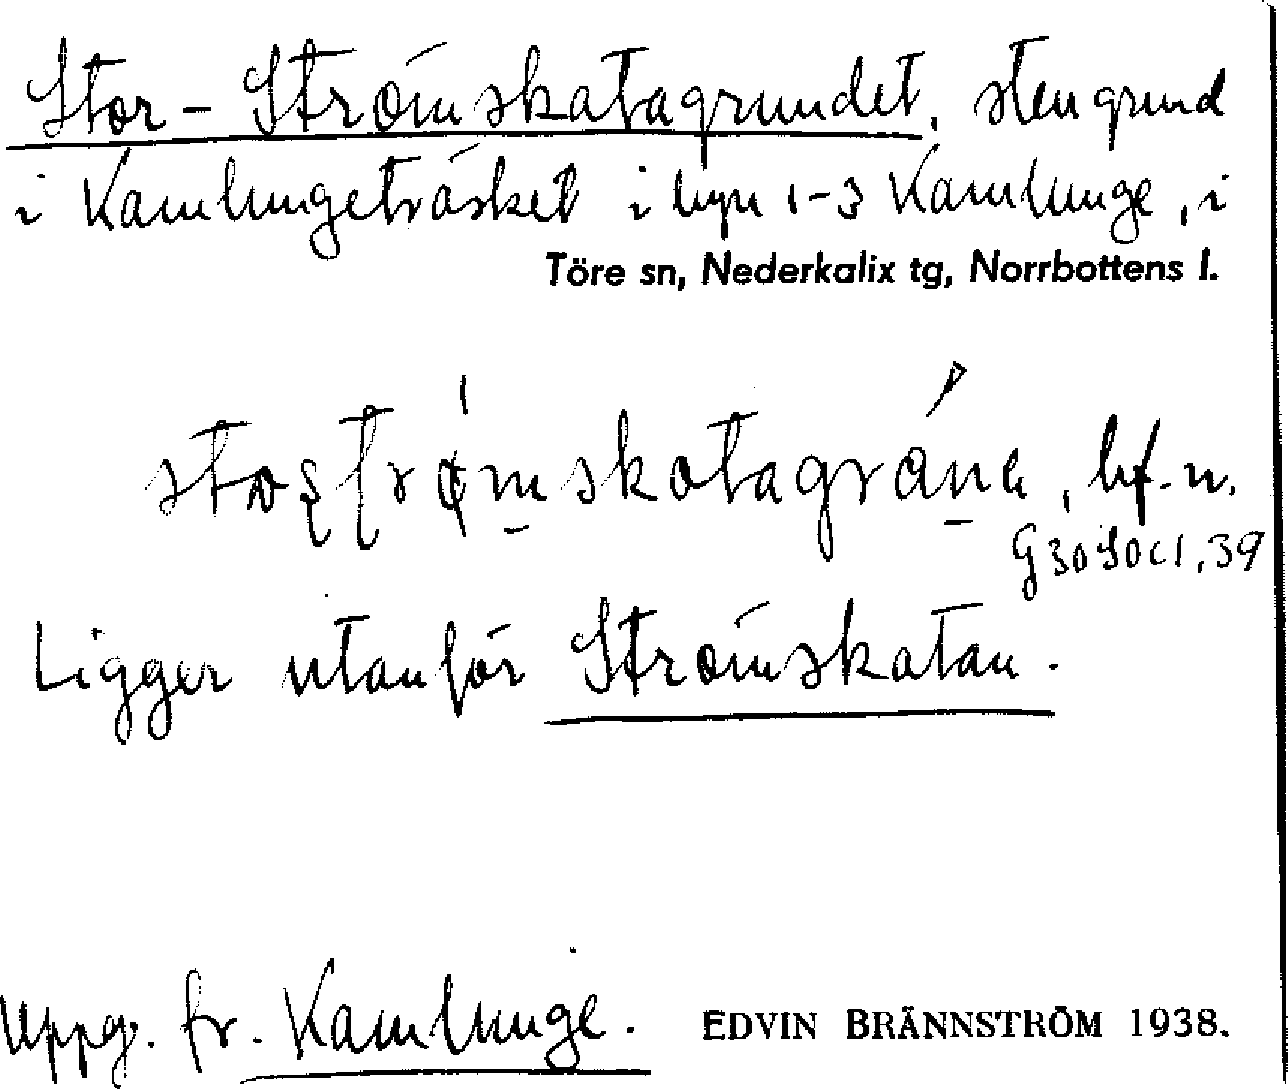 Stor-Strömskatagrundet, stengrund
i Kamlungeträsket i byn 1-3 Kamlunge, i
Töre sn, Nederkalix tg, Norrbottens l.
bf. n.
Ligger utanför Strömskatan.
Uppg. fr. Kamlunge. EDVIN BRÄNNSTRÖM 1938.